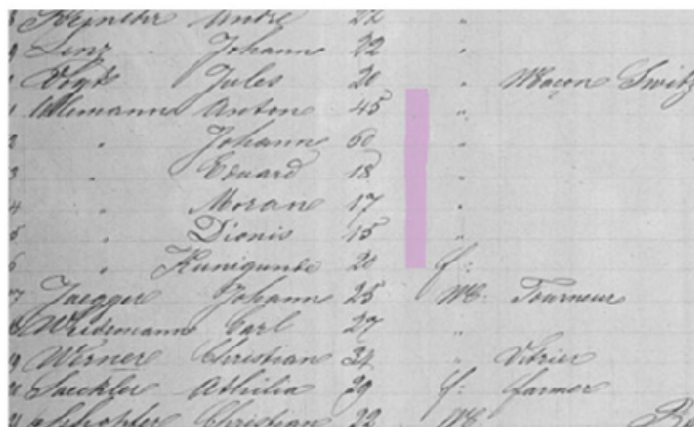 André 22 "
Lenz Johann 22 "
Vogt Jules 20 " Maçon Switz
Allemann Anton 45 "
" Johann 50 "
" Eduard 18 "
" Moran 17 "
" Dionis 15 "
" Kunigunde 20 f:
Jaegger Johann 25 M: Tourneur
Weidemann Carl 27 "
Werner Christian 34 " Vitrier
Athilia 29 f: farmer
Christian 22 M: